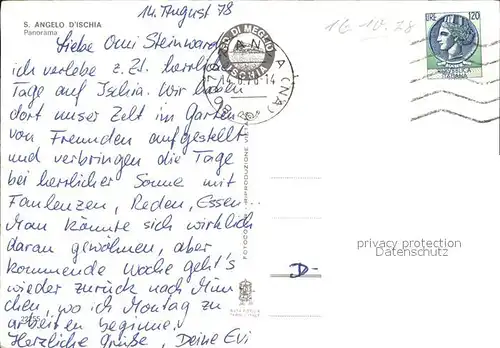 S. ANGELO D'ISCHIA
Panorama
14. August 78
16-10.78
Liebe Omi Steinward
ich verlebe z. Zt. herrliche
Tage auf Ischia. Wir haben
dort unser Zelt im Garten
von Freunden aufgestellt
und verbringen die Tage
bei herrlicher Sonne mit
Faulenzen, Reden, Essen...
Man könnte sich wirklich
daran gewöhnen, aber
kommende Woche geht's
wieder zurück nach Mün
chen, wo ich Montag zu
arbeiten beginne.
Herzliche Grüße, Deine Evi
DI MEGLIO
ISCHIA
(NA)
LIRE 120
D-
privacy protection
Datenschutz